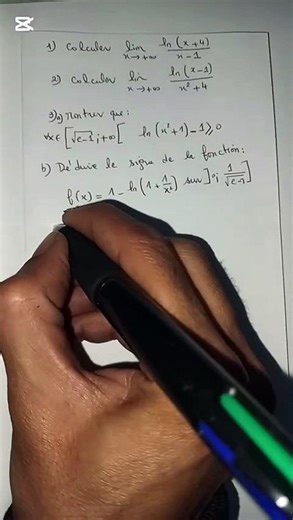 CapCut
1) Calculer lim x→+∞ ln(x+4)/x-1
2) Calculer lim x→+∞ ln(x-1)/x²+4
3)a) Montrer que:
∀x∈[√e-1 ; +∞[ ln(x²+1)-1⩾0
b) Déduire le signe de la fonction:
f(x) = 1 - ln(1+1/x²) sur ]0; 1/√e-1]